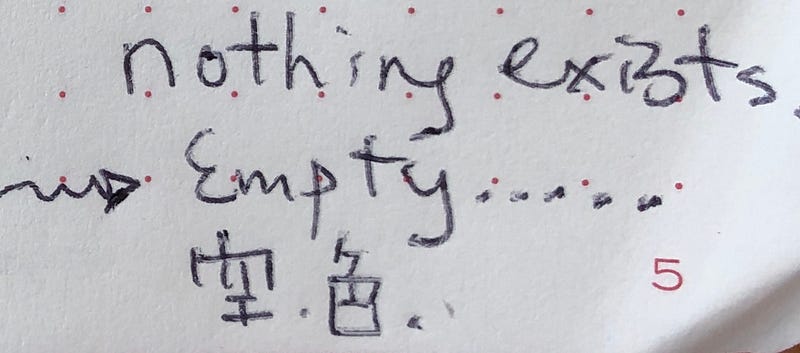 nothing exists
Empty......
空.色.
5